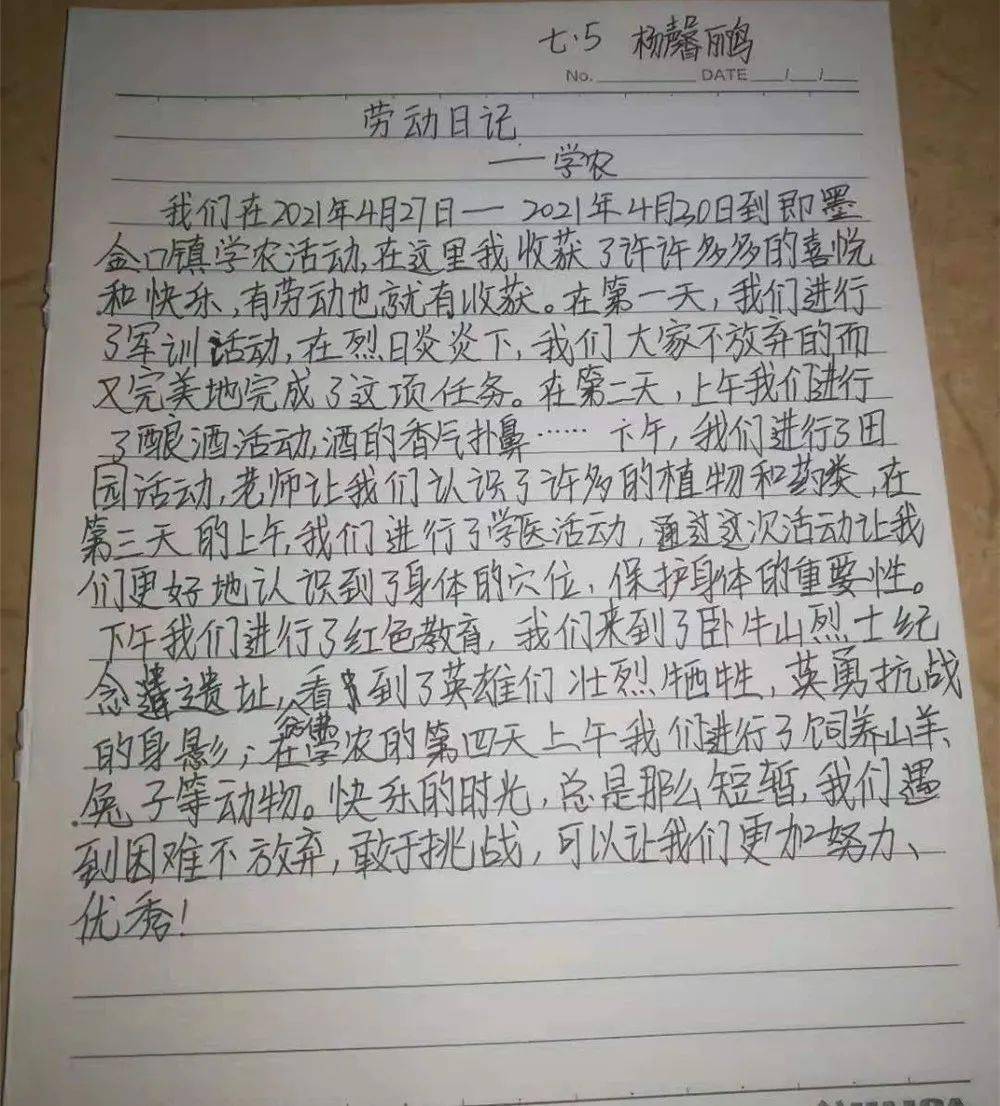 七.5 杨馨鹂
No. DATE / /
劳动日记
——学农
我们在2021年4月27日—2021年4月30日到即墨
金口镇学农活动,在这里我收获了许许多多的喜悦
和快乐,有劳动也就有收获。在第一天,我们进行
了军训活动,在烈日炎炎下,我们大家不放弃的而
又完美地完成了这项任务。在第二天,上午我们进行
了酿酒活动,酒的香气扑鼻……下午,我们进行了田
园活动,老师让我们认识了许多的植物和药类,在
第三天的上午,我们进行了学医活动,通过这次活动让我
们更好地认识到了身体的穴位、保护身体的重要性。
下午我们进行了红色教育,我们来到了卧牛山烈士纪
念遗址,看到了英雄们壮烈牺牲,英勇抗战
的身影;在学农的第四天上午我们进行了饲养山羊、
兔子等动物。快乐的时光,总是那么短暂,我们遇
到困难不放弃,敢于挑战,可以让我们更加努力、
优秀!